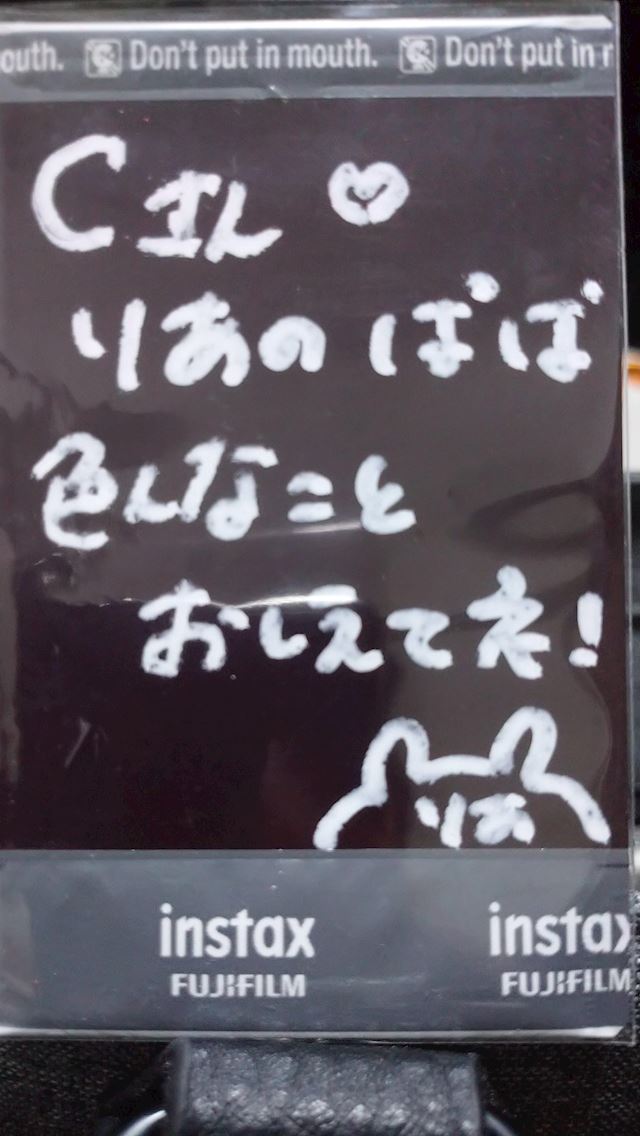 outh. Don't put in mouth. Don't put in
Cさん♡
りあのぱぱ
色んなこと
おしえてネ!
りあ
instax instax
FUJIFILM FUJIFILM